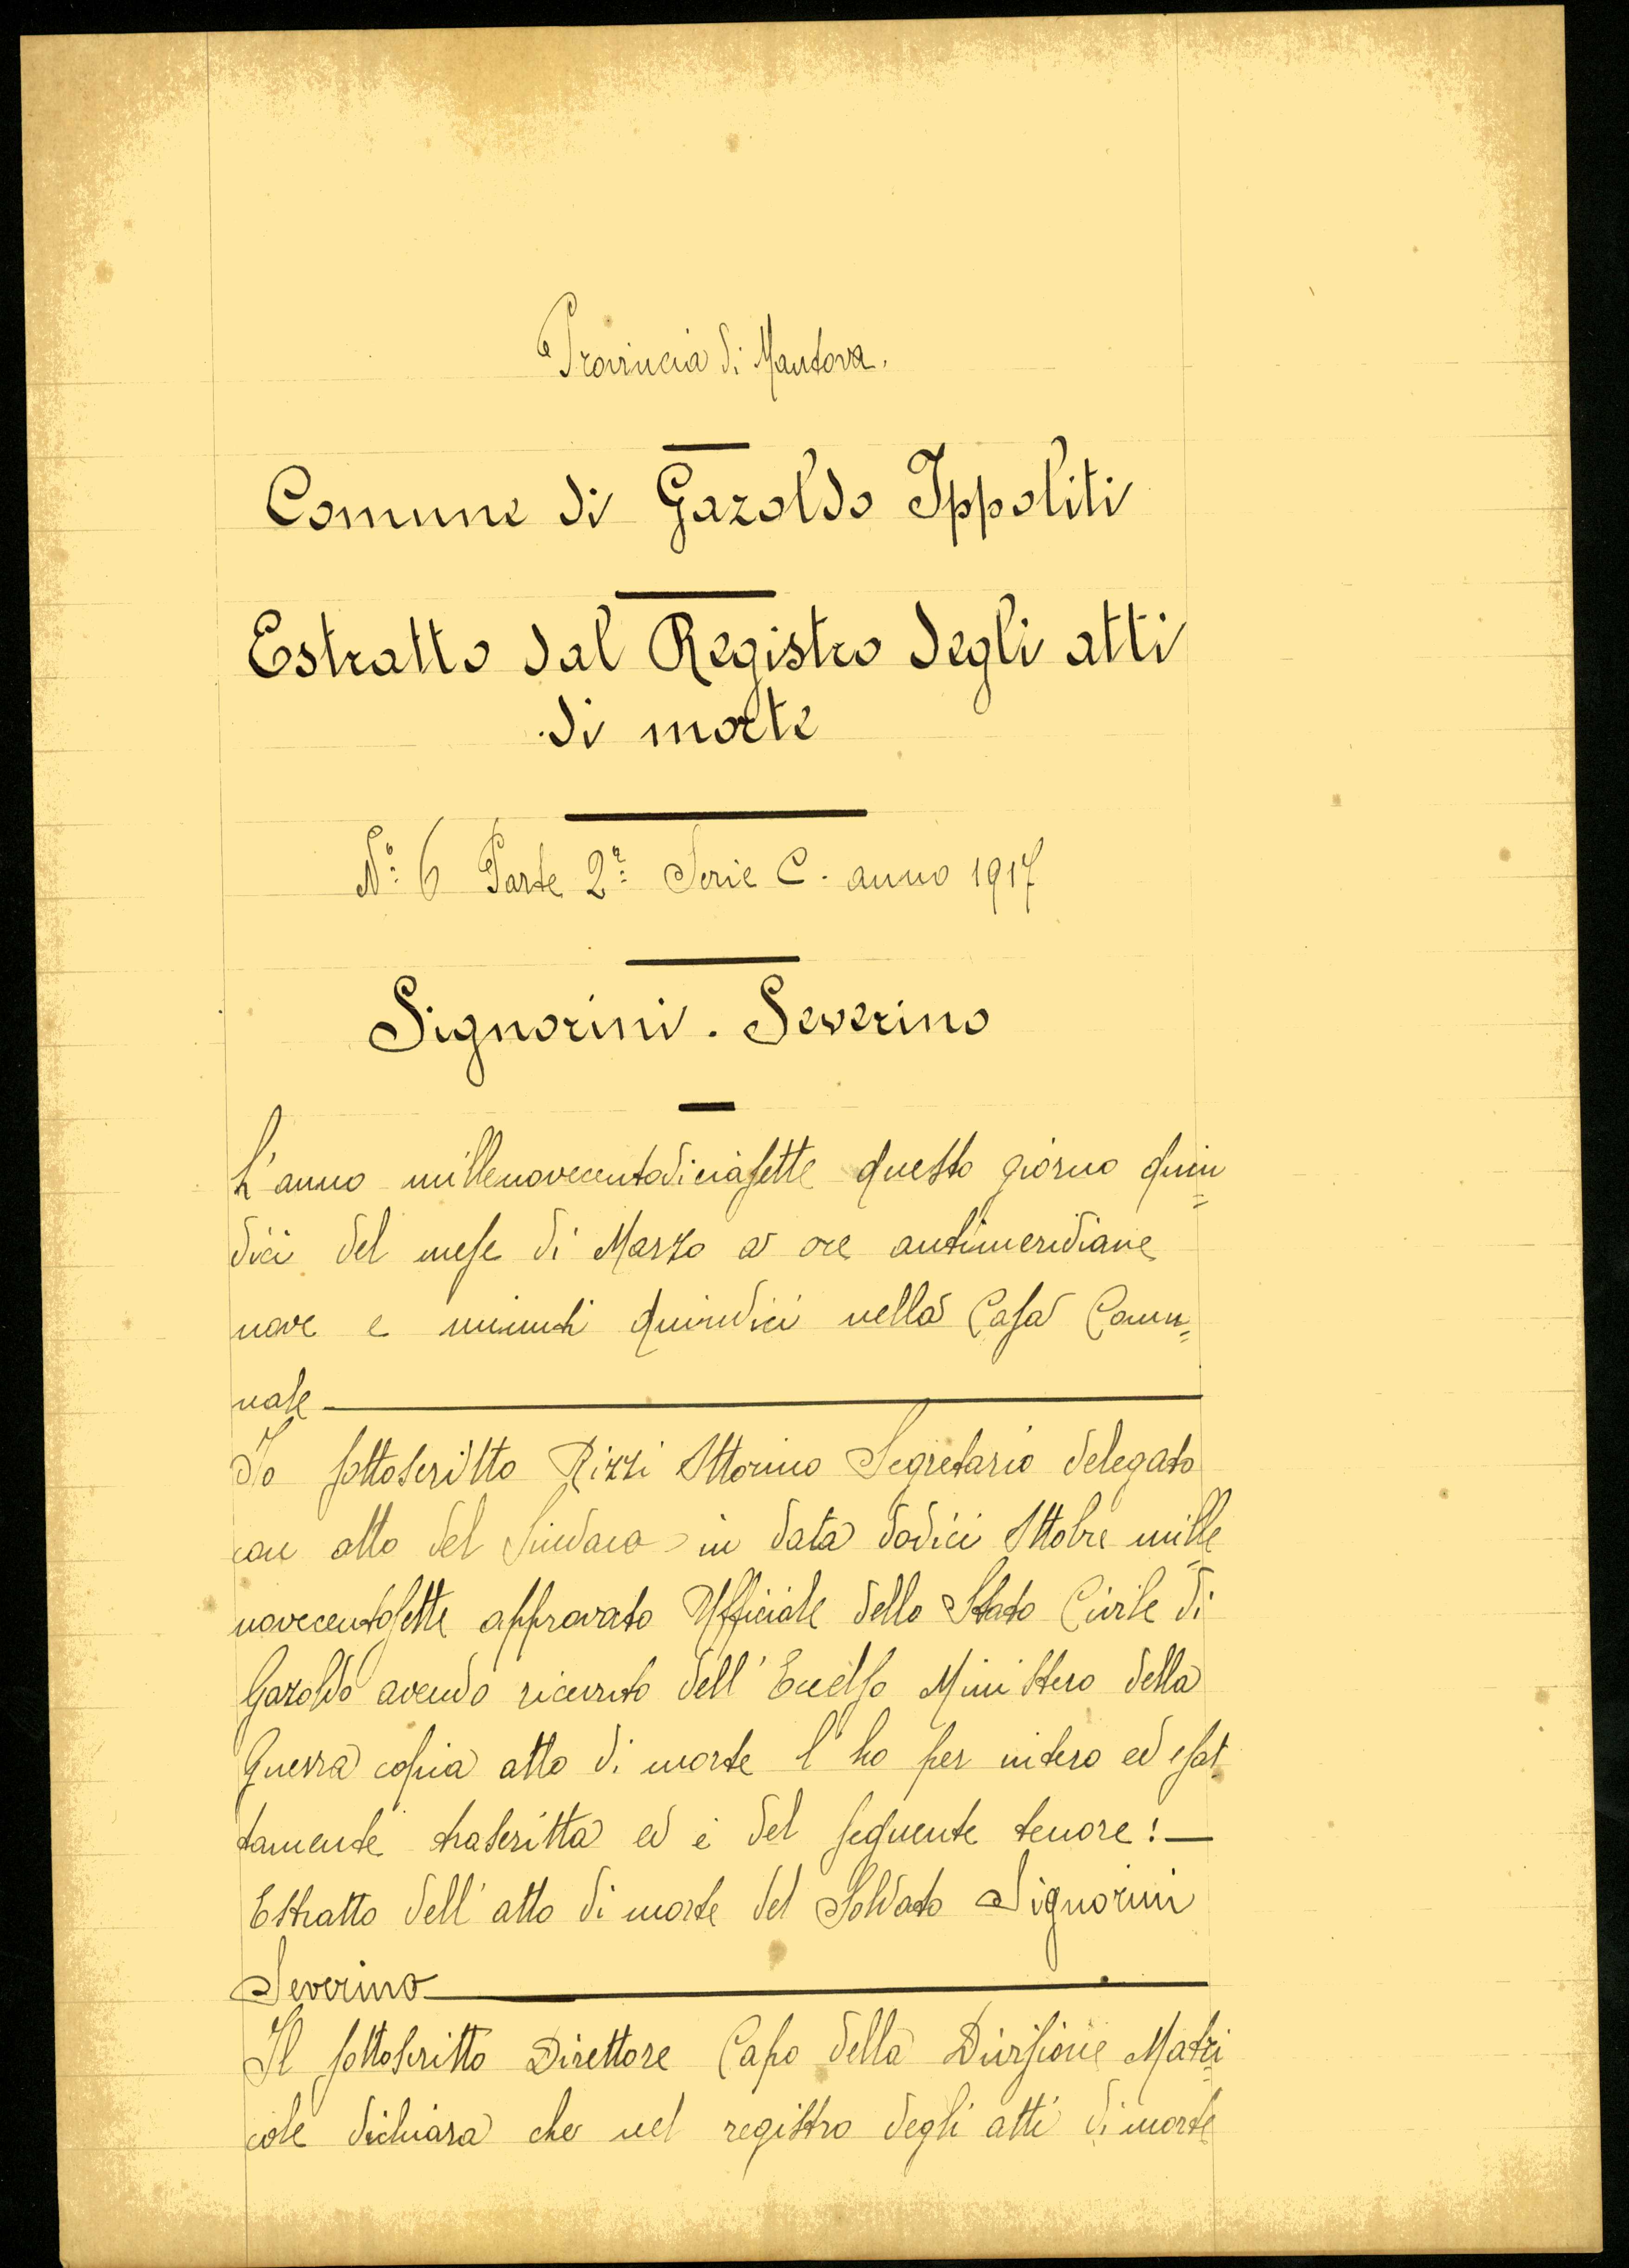 Provincia di Mantova.
Comune di Gazoldo Ippoliti
Estratto dal Registro degli atti
di morte
N.º 6 Parte 2ª Serie C. anno 1917
Signorini. Severino
L'anno millenovecentodiciasette questo giorno quin=
dici del mese di Marzo a ore antimeridiane
nove e minuti quindici nella Casa Comu=
nale
Io sottoscritto Rizzi Ottorino Segretario delegato
con atto del Sindaco in data dodici Ottobre mille=
novecentosette approvato Ufficiale dello Stato Civile di
Gazoldo avendo ricevuto dell'Eccelso Ministero della
Guerra copia atto di morte l'ho per intero ed esat=
tamente trascritta ed è del seguente tenore:
Estratto dell'atto di morte del Soldato Signorini
Severino
Il sottoscritto Direttore Capo della Divisione Matri=
cole dichiara che nel registro degli atti di morte